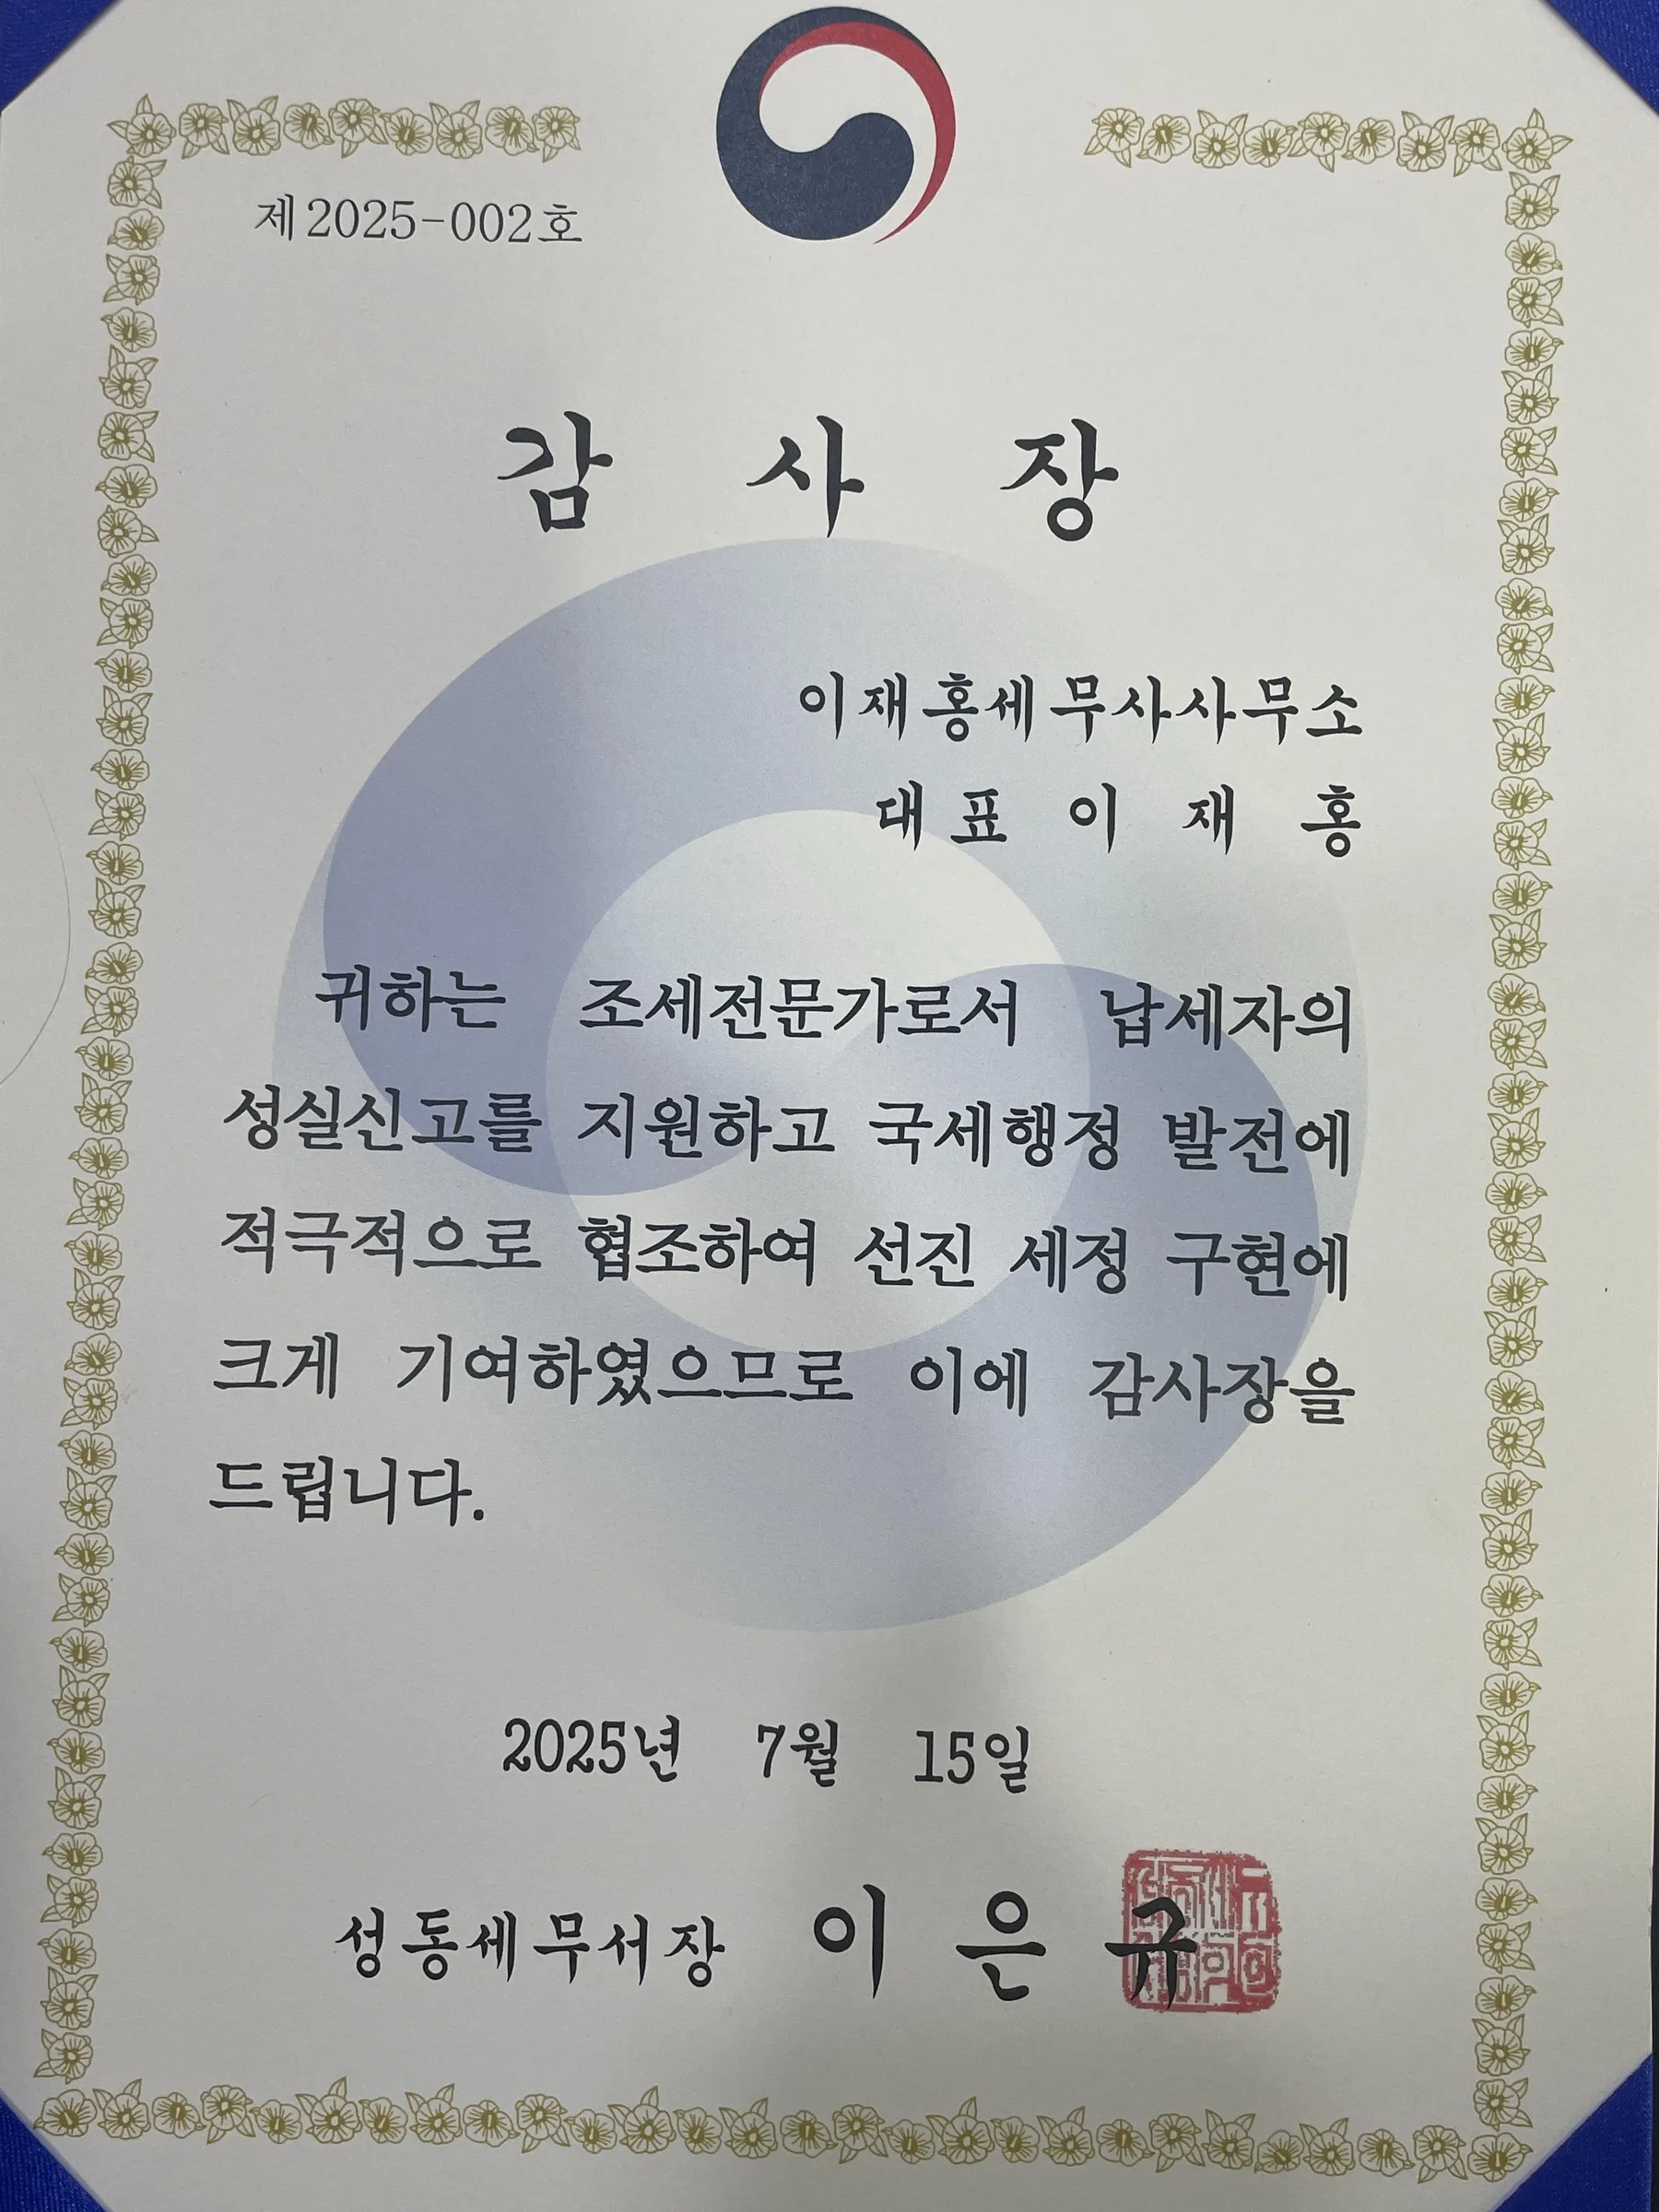 제2025-002호
감 사 장
이재홍세무사사무소
대표 이 재 홍
귀하는 조세전문가로서 납세자의
성실신고를 지원하고 국세행정 발전에
적극적으로 협조하여 선진 세정 구현에
크게 기여하였으므로 이에 감사장을
드립니다.
2025년 7월 15일
성동세무서장 이 은 규